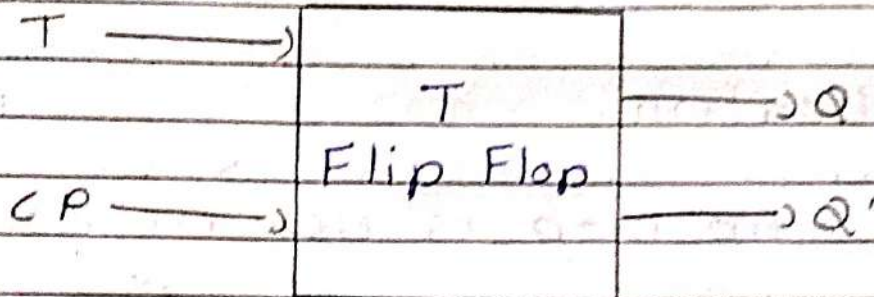 T
T
Q
Flip Flop
CP
Q'